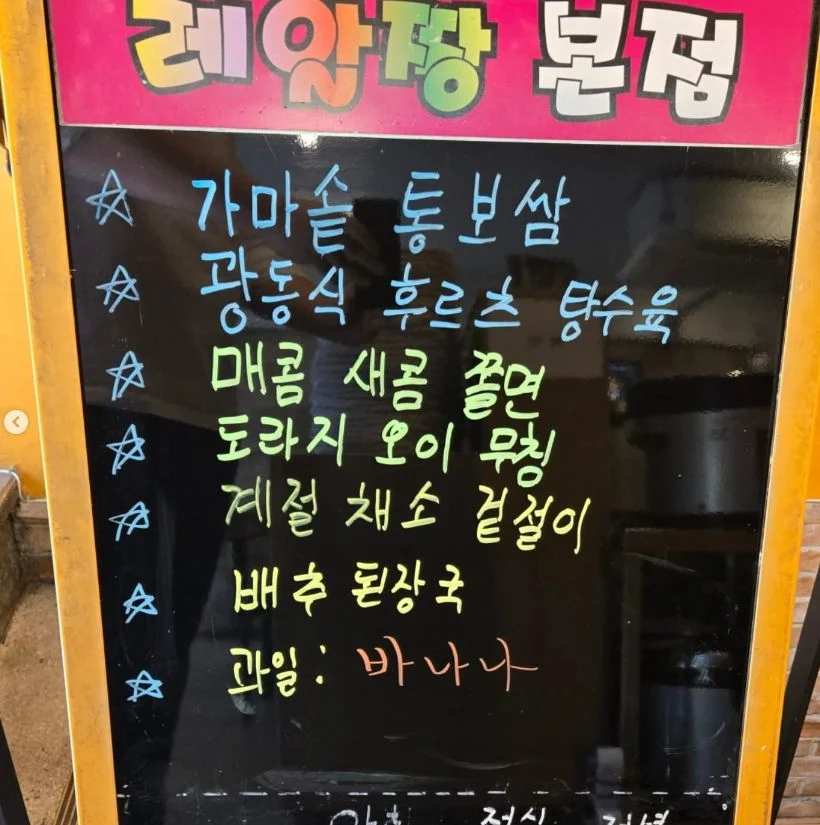 레알짱 본점
가마솥 통보쌈
광동식 후르츠 탕수육
매콤 새콤 쫄면
도라지 오이 무침
계절 채소 겉절이
배추 된장국
과일: 바나나